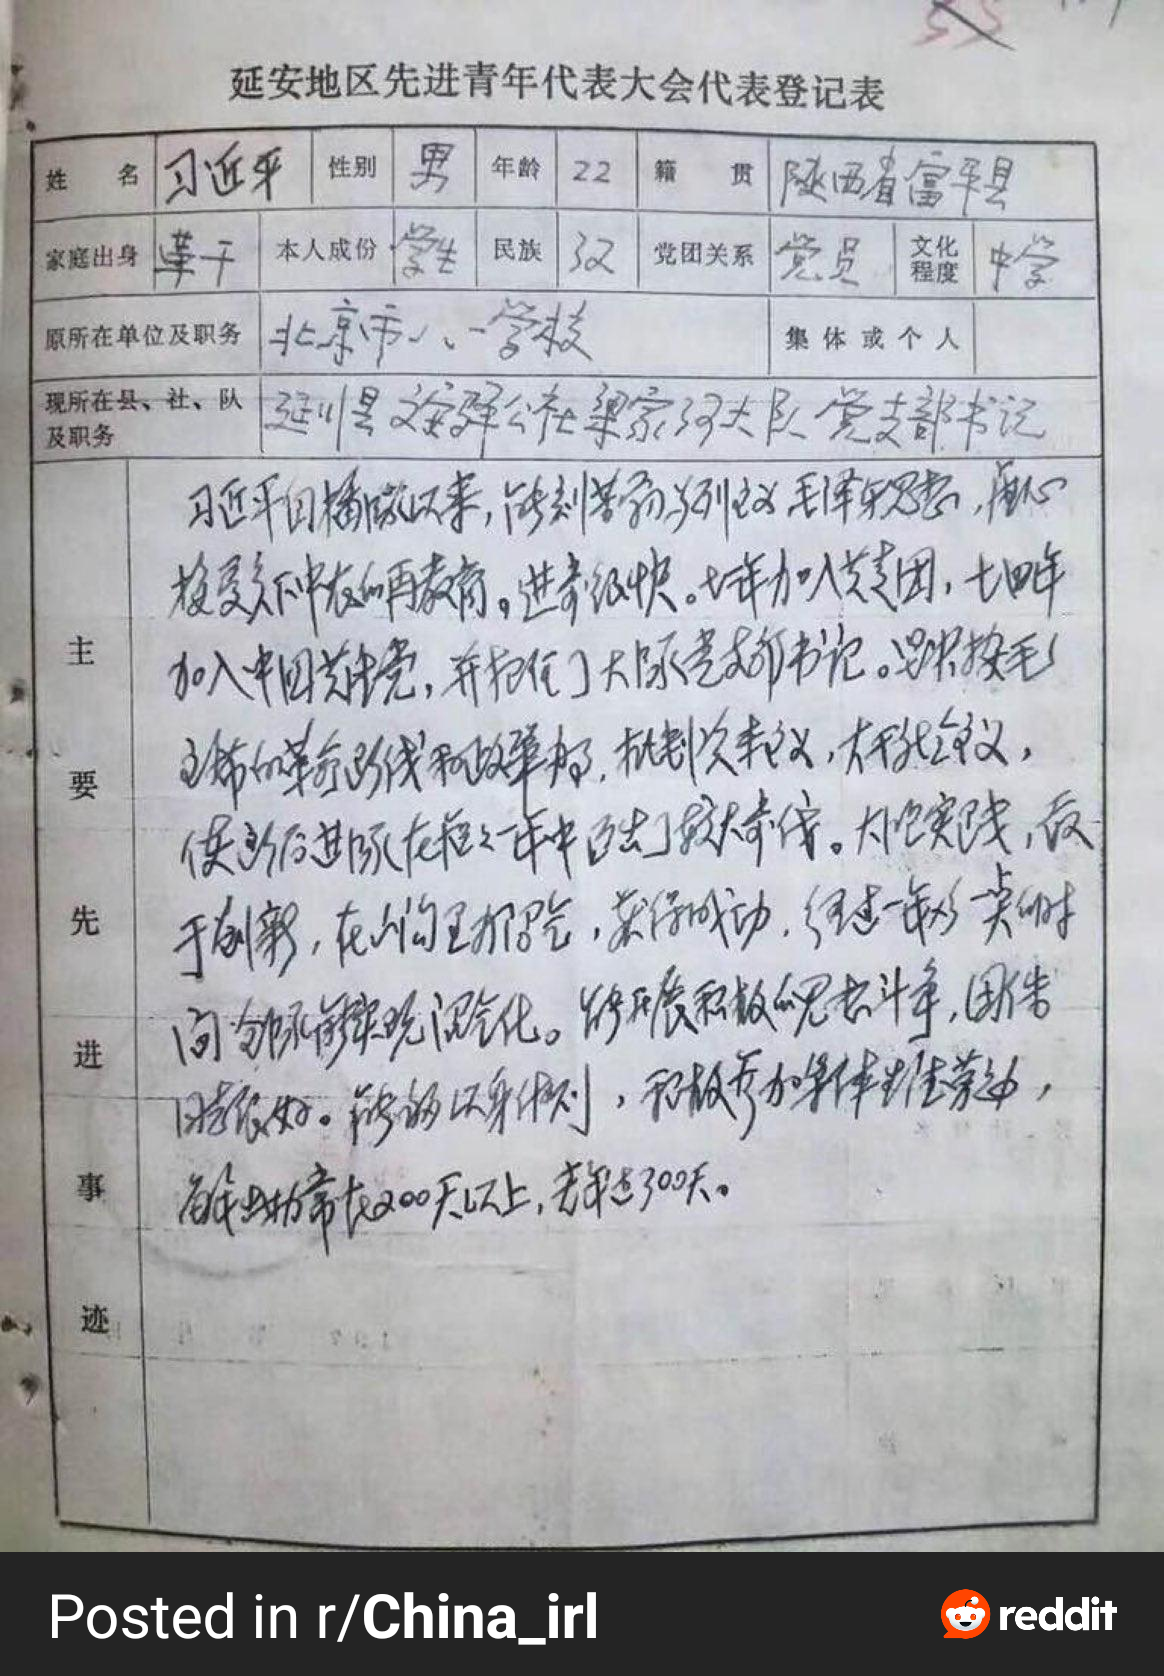 延安地区先进青年代表大会代表登记表
姓名 习近平 性别 男 年龄 22 籍贯 陕西省富平县
家庭出身 革干 本人成份 学生 民族 汉 党团关系 党员 文化程度 中学
原所在单位及职务 北京市八一学校 集体或个人
现所在县、社、队及职务 延川县文安驿公社梁家河大队党支部书记
主要先进事迹
习近平同志插队以来,能刻苦学习马列主义毛泽东思想,虚心
接受贫下中农的再教育。进步很快。七三年加入共青团,七四年
加入中国共产党,并担任了大队党支部书记。坚持按毛
主席的革命路线和政策办事,批判资本主义,大干社会主义,
使后进队在短短一年中迈出了较大步伐。大胆实践,敢
于创新,在山沟里办沼气,获得成功,经过一年多一点的时
间全队能实现沼气化。能开展积极的思想斗争,团结
同志很好。能够以身作则,积极参加集体生产劳动,
每年出勤常在200天以上,去年达300天。
Posted in r/China_irl
reddit